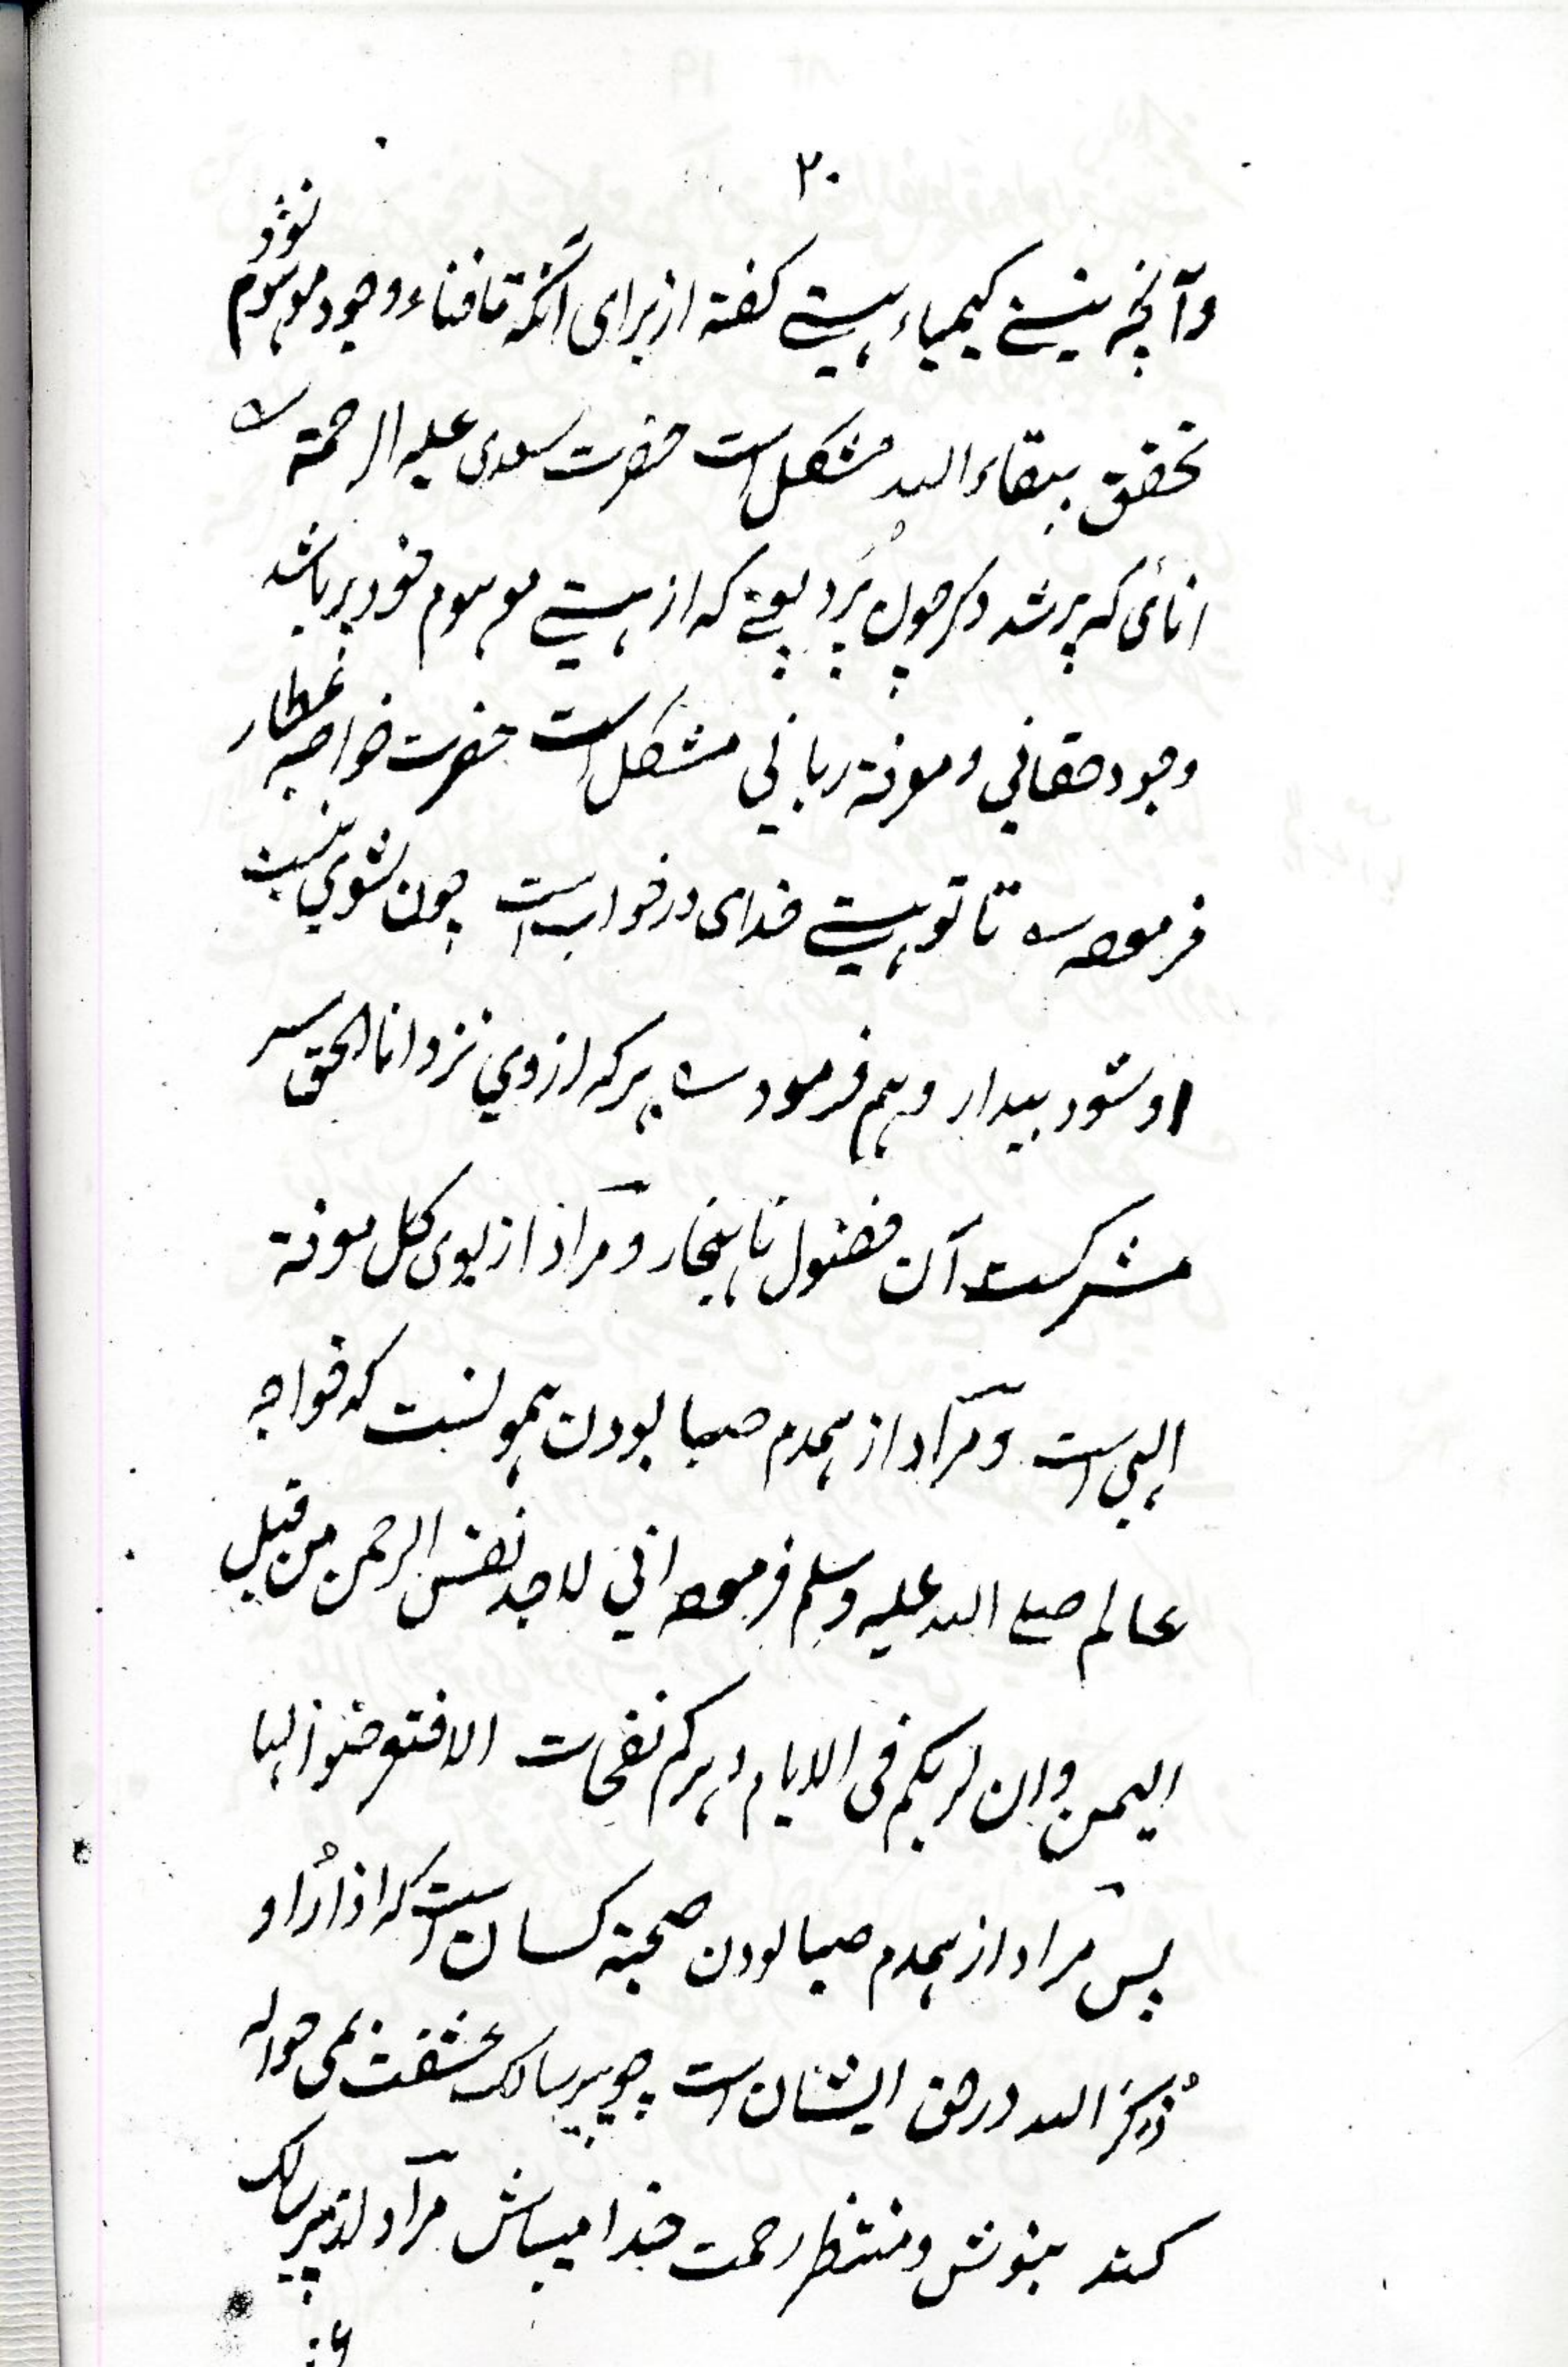 ۲۰
وآنچہ نیستے کیمیاء ہستے کفتہ از برای آنکہ تا فناء وجود موہوم نشود
تحقق ببقاء اللہ مشکل است حضرت سعدی علیہ الرحمة ؎
انائی کہ پر شد دکر چون پُرد یعنے کہ از ہستے موہوم خود پر باشد
وجود حقاني ومعرفة رباني مشکل است حضرت خواجہ عطار
فرمودہ ؎ تا تو ہستے خدای در خواب است چون نشوي نیست
او شود بیدار وہم فرمود ؎ ہر کہ از وي نزد انا الحق سر
مشرکست آن فضول نا ہنجار ومراد از بوی کل معرفة
الہي است ومراد از ہمدم صبا بودن ہمو نسبت کہ خواجہ
عالم صلے اللہ علیہ وسلم فرمودہ اني لاجد نفس الرحمن من قبل
الیمن وان لربکم فی الایام دہرکم نفحات الا فتعرضوا لہا
پس مراد از ہمدم صبا بودن صحبة کسان است کہ اذا رُاو
ذُکرَ اللہ در حق ایشان است چو پیر سالک عشقت بمی حوالہ
کند بنوش ومنتظر رحمت خدا میباش مراد از پیر سالک